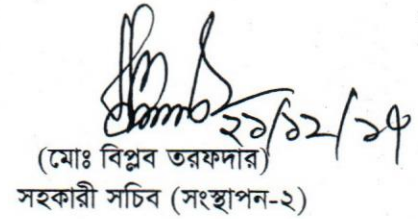 ২১/১২/১৫
(মোঃ বিপ্লব তরফদার)
সহকারী সচিব (সংস্থাপন-২)